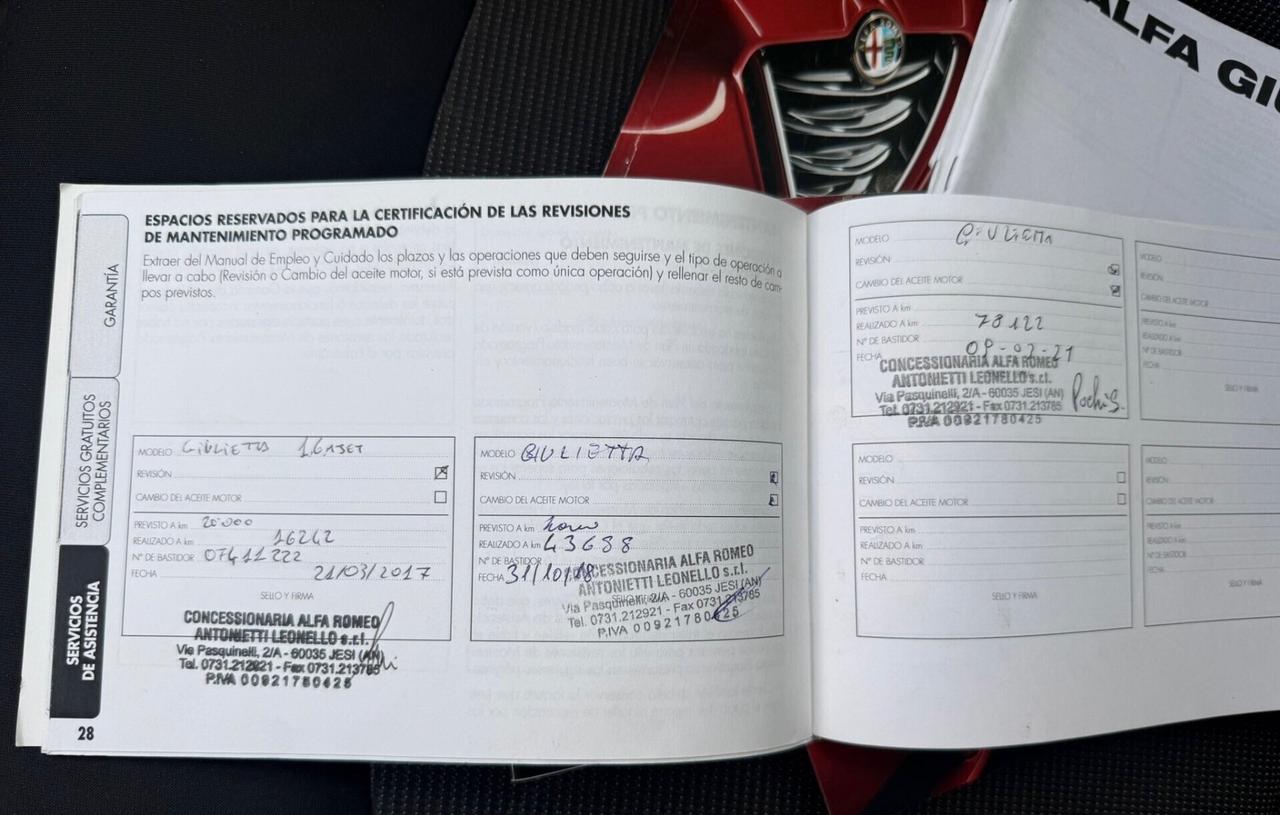 ALFA GIU
ALFA ROMEO
ESPACIOS RESERVADOS PARA LA CERTIFICACIÓN DE LAS REVISIONES
DE MANTENIMIENTO PROGRAMADO
Extraer del Manual de Empleo y Cuidado los plazos y las operaciones que deben seguirse y el tipo de operación a
llevar a cabo (Revisión o Cambio del aceite motor, si está prevista como única operación) y rellenar el resto de cam-
pos previstos.
GARANTÍA
SERVICIOS GRATUITOS
COMPLEMENTARIOS
SERVICIOS
DE ASISTENCIA
28
MODELO GIULIETTA 1.6 MJET
REVISIÓN
CAMBIO DEL ACEITE MOTOR
PREVISTO A km 20.000
REALIZADO A km 16242
N° DE BASTIDOR 07411222
FECHA 21/03/2017
SELLO Y FIRMA
CONCESSIONARIA ALFA ROMEO
ANTONIETTI LEONELLO s.r.l.
Via Pasquinelli, 2/A - 60035 JESI (AN)
Tel. 0731.212921 - Fax 0731.213785
P.IVA 00921780425
MODELO GIULIETTA
REVISIÓN
CAMBIO DEL ACEITE MOTOR
PREVISTO A km
REALIZADO A km 43688
N° DE BASTIDOR
FECHA 31/10/18
SELLO Y FIRMA
CONCESSIONARIA ALFA ROMEO
ANTONIETTI LEONELLO s.r.l.
Via Pasquinelli, 2/A - 60035 JESI (AN)
Tel. 0731.212921 - Fax 0731.213785
P.IVA 00921780425
MODELO GIULIETTA
REVISIÓN
CAMBIO DEL ACEITE MOTOR
PREVISTO A km
REALIZADO A km 78122
N° DE BASTIDOR
FECHA 09-02-21
CONCESSIONARIA ALFA ROMEO
ANTONIETTI LEONELLO s.r.l.
Via Pasquinelli, 2/A - 60035 JESI (AN)
Tel. 0731.212921 - Fax 0731.213785
P.IVA 00921780425
MODELO
REVISIÓN
CAMBIO DEL ACEITE MOTOR
PREVISTO A km
REALIZADO A km
N° DE BASTIDOR
FECHA
SELLO Y FIRMA
MODELO
REVISIÓN
CAMBIO DEL ACEITE MOTOR
PREVISTO A km
REALIZADO A km
N° DE BASTIDOR
FECHA
SELLO Y FIRMA
MODELO
REVISIÓN
CAMBIO DEL ACEITE MOTOR
PREVISTO A km
REALIZADO A km
N° DE BASTIDOR
FECHA
SELLO Y FIRMA